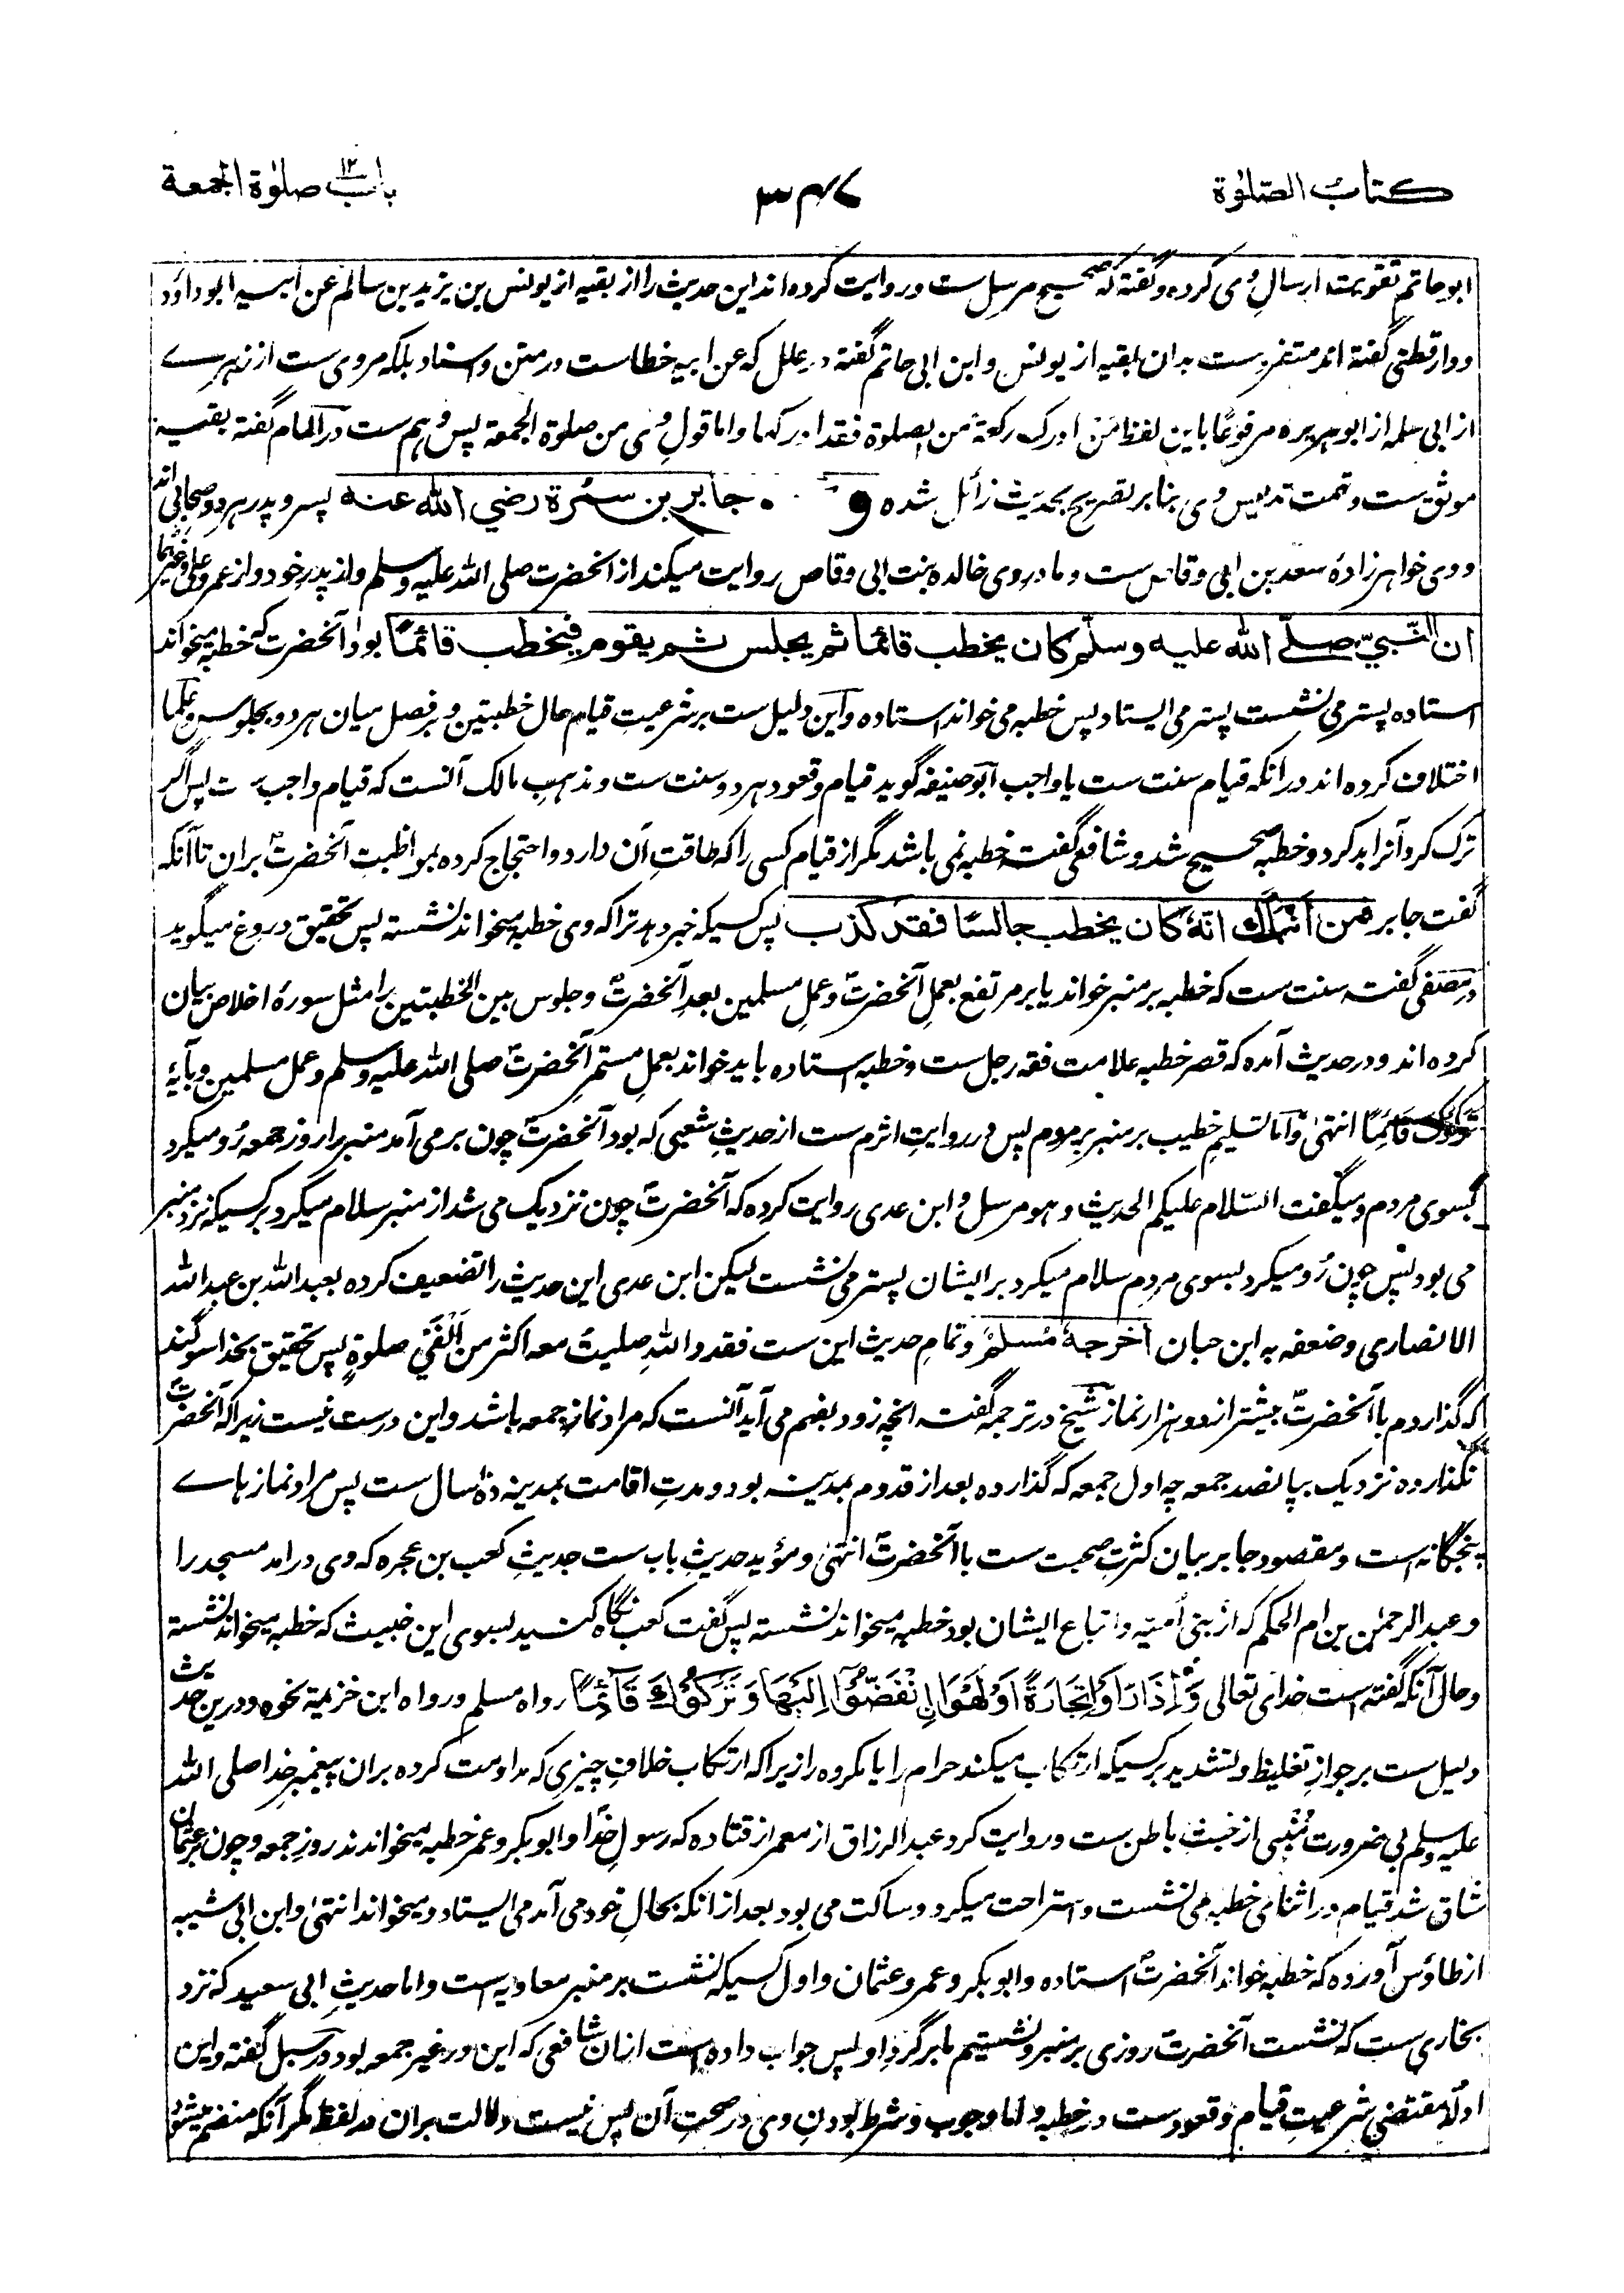 كتاب الصّلوٰة
٣٤٧
باب ١٢ صلوٰة الجمعة
ابو حاتم تقویت ارسالِ وی کرده و گفته که صحیح مرسل ست و روایت کرده اند این حدیث را از بقیه از یونس بن یزید بن سالم عن ابیه ابو داؤد
و دارقطنی گفته اند متفرد ست بدان بقیه از یونس و ابن ابی حاتم گفته در علل که عن ابیه خطاست در متن و اسناد بلکه مروی ست از زهرے
از ابی سلمه از ابو هریره مرفوعًا باین لفظ مَنْ ادرک رکعةً من الصلوٰة فقد ادرکها و اما قولِ وی من صلوة الجمعة پس وهم ست در المام گفته بقیه
موثق ست و تهمت تدلیس وی بنابر تصریح بحدیث زائل شده و جابر بن سمُرة رضي الله عنه پسر و پدر هر دو صحابی اند
و وی خواهر زادهٔ سعد بن ابی وقاص ست و مادر وی خالده بنت ابی وقاص روایت میکند از آنحضرت صلی الله علیه وسلم و از پدر خود و از عمر و علی و غیرهما
ان النّبيّ صلّى الله عليه وسلّم كان يخطب قائما ثم يجلس ثم يقوم فيخطب قائمًا بود آنحضرت که خطبه میخواند
استاده پستر می نشست پستر می ایستاد پس خطبه می خواند استاده و این دلیل ست بر شرعیتِ قیام حال خطبتین و بر فصل میان هر دو بجلوس و علما
اختلاف کرده اند در آنکه قیام سنت ست یا واجب ابو حنیفه گوید قیام و قعود هر دو سنت ست و مذهبِ مالک آنست که قیام واجب ست پس اگر
ترک کرد آنرا بد کرد و خطبه صحیح شد و شافعی گفت خطبه نمی باشد مگر از قیام کسی را که طاقتِ آن دارد و احتجاج کرده بمواظبت آنحضرت بران تا آنکه
گفت جابر فمن انبأك انّه كان يخطب جالسًا فقد كذب پس کسیکه خبر دهد ترا که وی خطبه میخواند نشسته پس تحقیق دروغ میگوید
در مصفی گفته سنت ست که خطبه بر منبر خواند یا بر مرتفع بعملِ آنحضرت و عملِ مسلمین بعدِ آنحضرت و جلوس بین الخطبتین را مثل سورهٔ اخلاص بیان
کرده اند و در حدیث آمده که قصر خطبه علامت فقه رجل ست و خطبه استاده باید خواند بعملِ مستمرِ آنحضرت صلی الله علیه وسلم و عمل مسلمین و بآیهٔ
تَرَكُوكَ قَائِمًا انتهیٰ و اما تسلیمِ خطیب بر منبر بر مردم پس در روایتِ اثرم ست از حدیثِ شعبی که بود آنحضرت چون بر می آمد منبر را روزِ جمعه رُو میکرد
بسوی مردم و میگفت السّلام علیکم الحدیث و هو مرسل و ابن عدی روایت کرده که آنحضرت چون نزدیک می شد از منبر سلام میکرد بر کسیکه نزد منبر
می بود پس چون رُو میکرد بسوی مردم سلام میکرد بر ایشان پستر می نشست لیکن ابن عدی این حدیث را تضعیف کرده بعبد الله بن عبد الله
الانصاری و ضعفه به ابن حبان اخرجهٗ مُسلمٌ و تمامِ حدیث این ست فقد واللهِ صلیتُ معه اکثر من اَلْفَيْ صلوةٍ پس تحقیق بخدا سوگند
که گذاردم با آنحضرت بیشتر از دو هزار نماز شیخ در ترجمه گفت انچه زود بفهم می آید آنست که مراد نماز جمعه باشد و این درست نیست زیرا که آنحضرت
نگذارده نزدیک بپانصد جمعه چه اول جمعه که گذارده بعد از قدوم بمدینه بود و مدتِ اقامت بمدینه دَه سال ست پس مراد نمازهاے
پنجگانه است و مقصود جابر بیان کثرتِ صحبت ست با آنحضرت انتهیٰ و مؤید حدیثِ باب ست حدیثِ کعب بن عجره که وی درآمد مسجد را
و عبد الرحمٰن بن ام الحکم که از بنی اُمیّه و اتباع ایشان بود خطبه میخواند نشسته پس گفت کعب نگاه کنید بسوی این خبیث که خطبه میخواند نشسته
و حال آنکه گفته است خدای تعالی وَاِذَا رَاَوْا تِجَارَةً اَوْ لَهْوَا ۨانْفَضُّوْٓا اِلَيْهَا وَتَرَكُوْكَ قَآئِمًا رواه مسلم و رواه ابن خزیمة نحوه و درین حدیث
دلیل ست بر جوازِ تغلیظ و تشدید بر کسیکه ارتکاب میکند حرام را یا مکروه را زیرا که ارتکاب خلافِ چیزی که مداومت کرده بران پیغمبر خدا صلی الله
علیه وسلم بی ضرورت مُنبی از خبثِ باطن ست و روایت کرد عبد الرزاق از معمر از قتاده که رسولِ خدا و ابو بکر و عمر خطبه میخواندند روزِ جمعه و چون بر عثمان
شاق شد قیام در اثنای خطبه می نشست و استراحت میکرد و ساکت می بود بعد از آنکه بحالِ خود می آمد می ایستاد و میخواند انتهیٰ و ابن ابی شیبه
از طاؤس آورده که خطبه خواند آنحضرت استاده و ابو بکر و عمر و عثمان و اول کسیکه نشست بر منبر معاویه ست و اما حدیثِ ابی سعید که نزد
بخاری ست که نشست آنحضرت روزی بر منبر و نشستیم ما بر گردِ او پس جواب داده است ازان شافعی که این در غیر جمعه بود در سبل گفته و این
ادلّه مقتضیِ شرعیتِ قیام و قعود ست در خطبه و اما وجوب و شرط بودنِ وی در صحتِ آن پس نیست دلالت بران در لفظ مگر آنکه منضم میشود